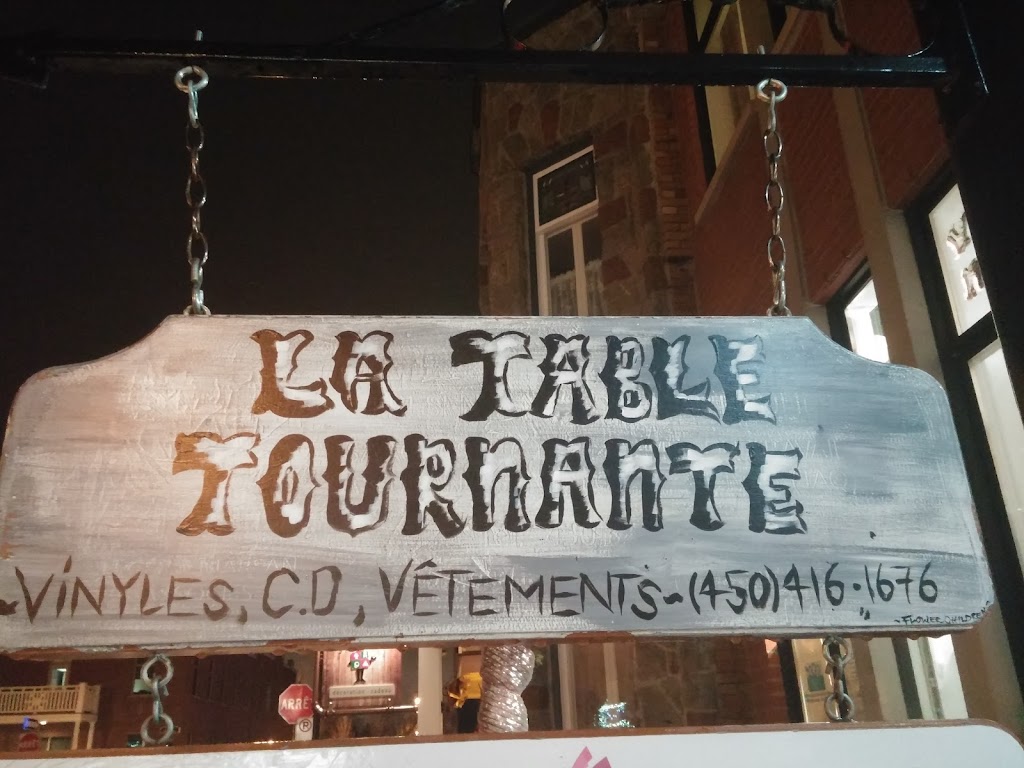 LA TABLE
TOURNANTE
~VINYLES, C.D, VÊTEMENTS~(450)416·1676
ARRÊT